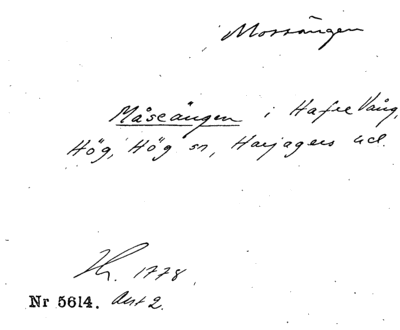 Mossängen
Måseängen i Hafre Vång,
Hög, Hög sn, Harjagers hd.
Hr. 1778.
Nr 5614. Akt 2.